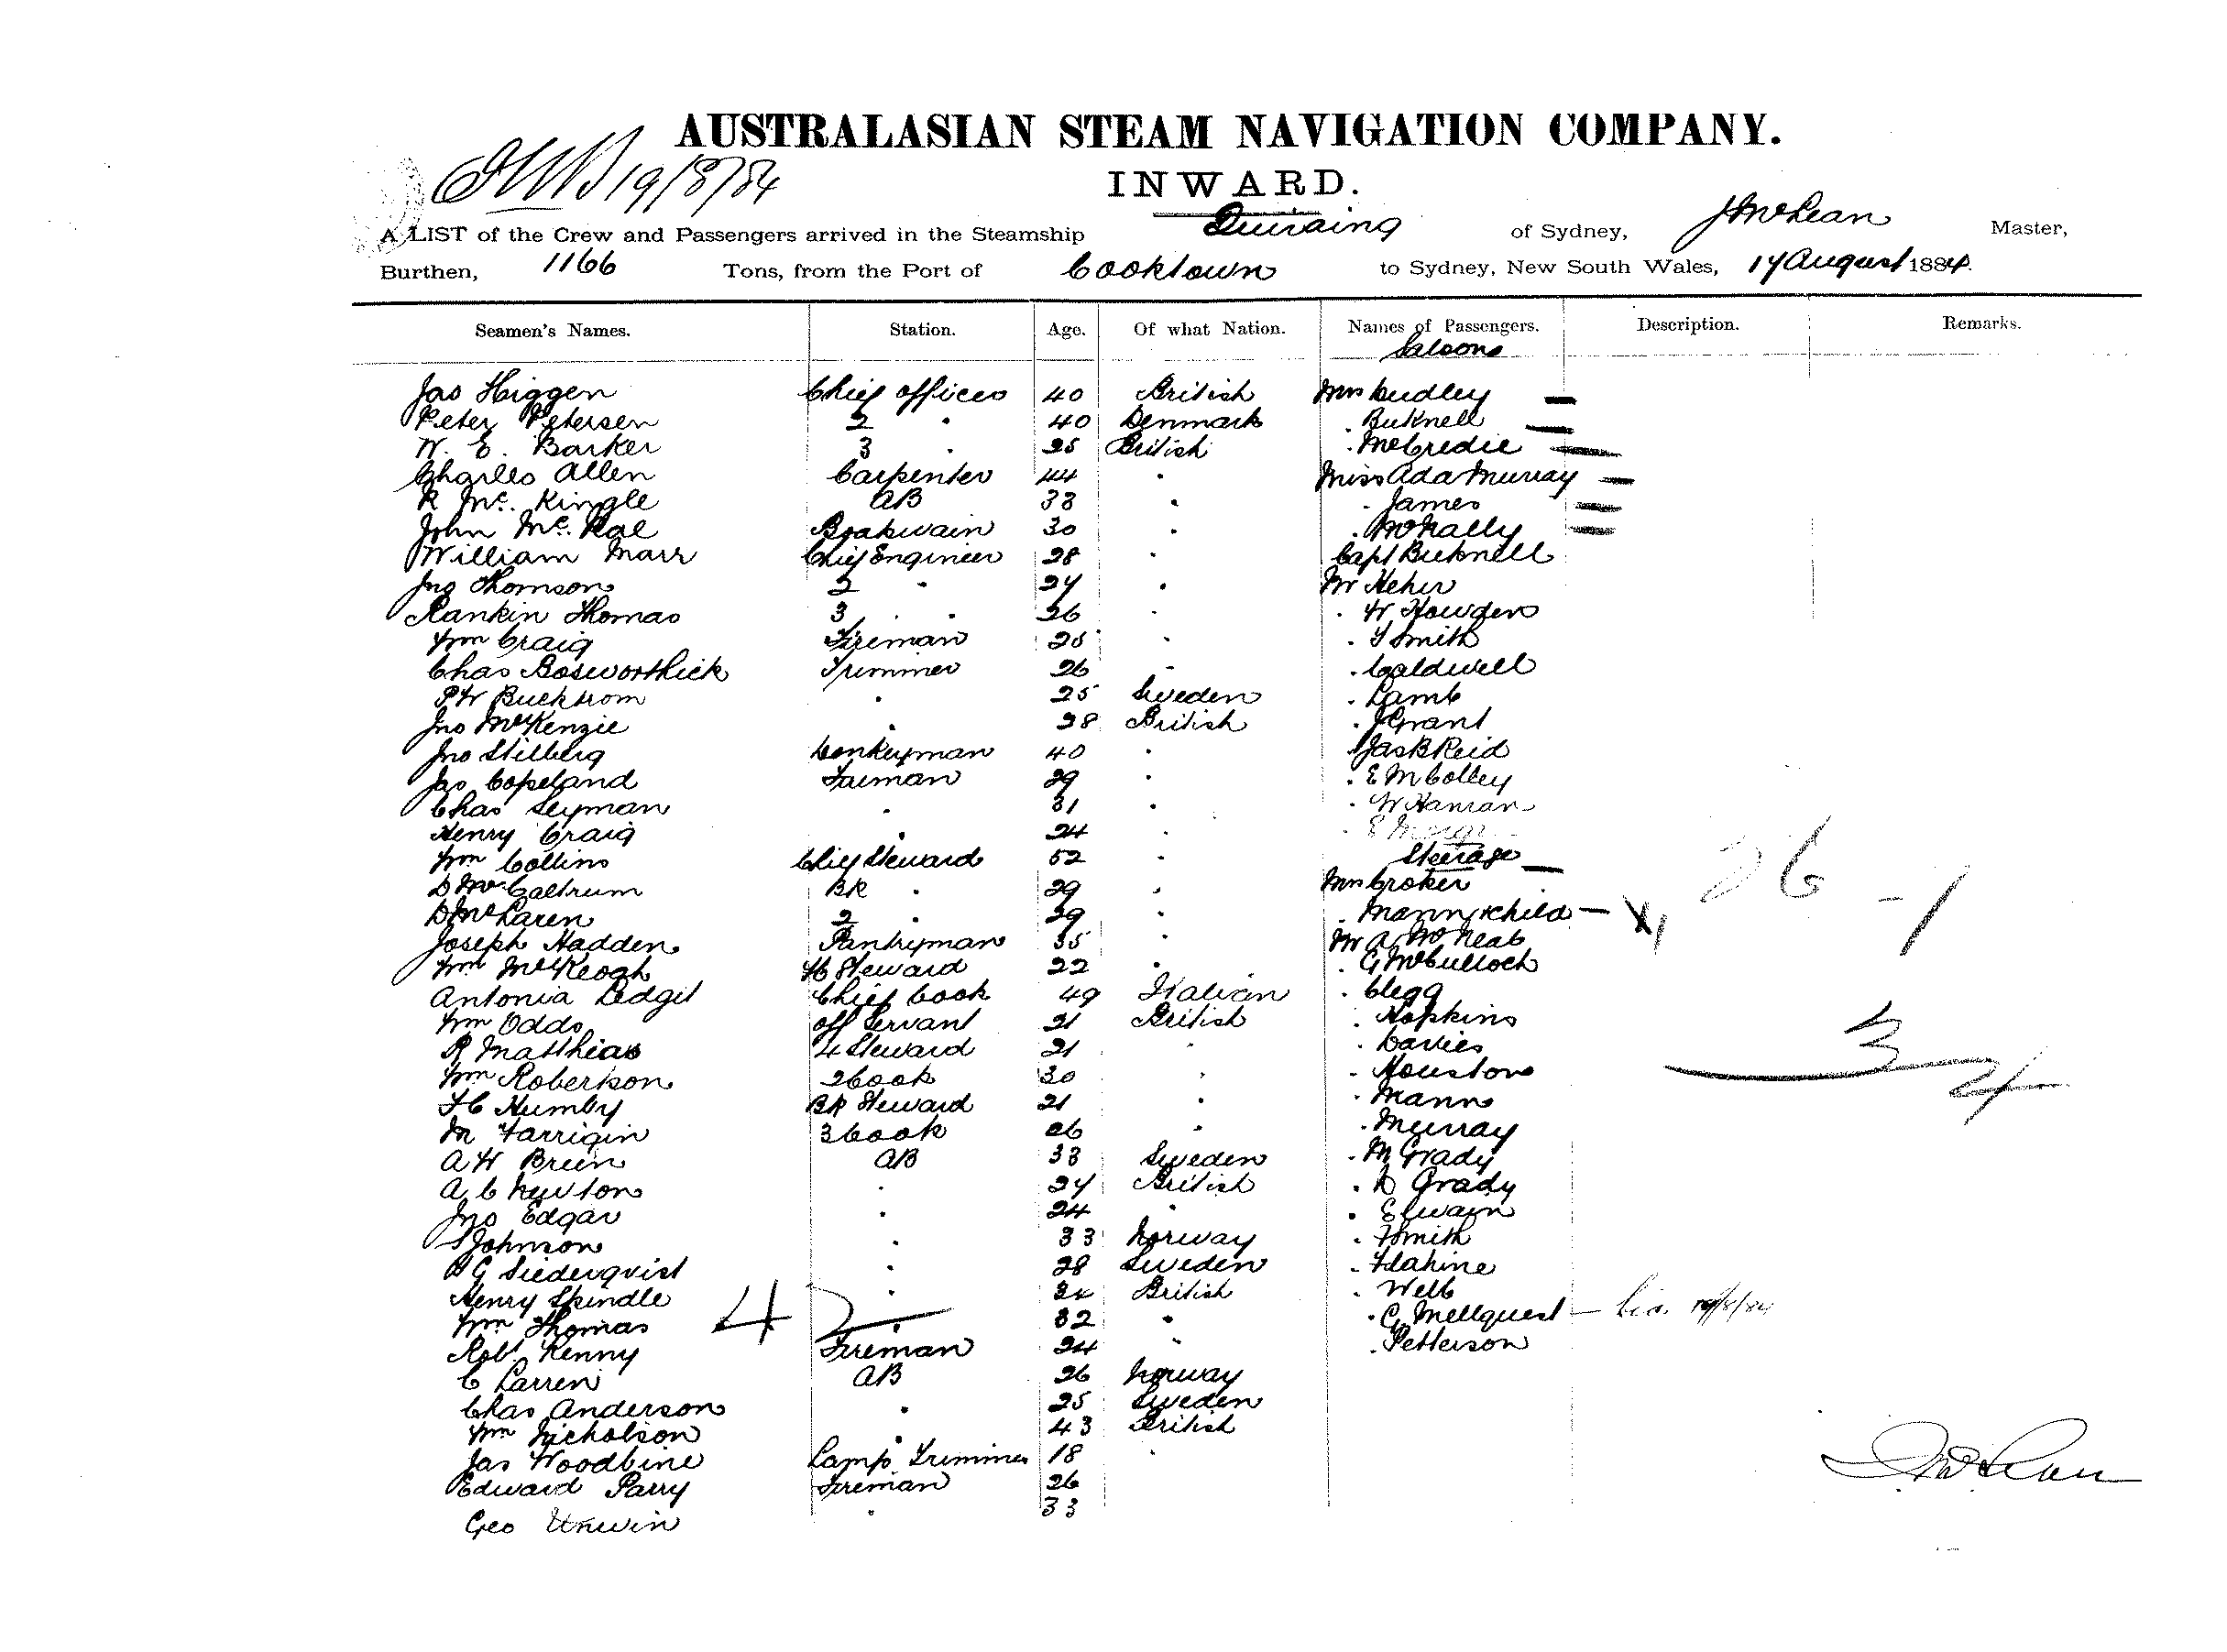 AUSTRALASIAN STEAM NAVIGATION COMPANY.
19/8/84
INWARD.
A LIST of the Crew and Passengers arrived in the Steamship Quiraing of Sydney, J McLean Master,
Burthen, 1166 Tons, from the Port of Cooktown to Sydney, New South Wales, 17 August 1884.
Seamen's Names. Station. Age. Of what Nation. Names of Passengers. Description. Remarks.
Saloon
Jas Higgen Chief officer 40 British Mrs Dudley —
Peter Petersen 2 " 40 Denmark " Bucknell —
W. E. Barker 3 " 25 British " McCredie —
Charles Allen Carpenter 44 " Miss Ada Murray —
R Mc. Kingle AB 33 " " James —
John Mc. Rae Boatswain 30 " " McNally —
William Marr Chief Engineer 28 " Capt Bucknell
Jno Thomson 2 " 27 " Mr Heher
Rankin Thomas 3 " " 26 " " W Howden
Wm Craig Fireman 25 " " T Smith
Chas Bosworthick Trimmer 26 " " Caldwell
P W Buckstrom " 25 Sweden " Lamb
Jno McKenzie " 28 British " J Grant
Jno Stilberg Donkeyman 40 " " Jas B Reid
Jas Copeland Fireman 29 " " E M Colley
Chas Seyman " 31 " " W Hanran
Henry Craig " 24 " " E
Wm Collins Chief Steward 52 " Steerage
D McCaltrum BR " 29 " Mrs Croker —
D McLaren 2 " 29 " " Mann & child — X 1
26 - 1
Joseph Hadden Pantryman 35 " Mr A McNeab
Wm McKeogh Steward 22 " " G McCulloch
Antonia Ledgit Chief Cook 49 Italian " Clegg
Wm Odds off Servant 21 British " Hopkins
R Matthias 4 Steward 21 " " Davies
3
Wm Robertson 2 Cook 30 " " Houston
4
F C Humby BR Steward 21 " " Mann
M Farrigin 3 Cook 26 " " Murray
A W Breen AB 33 Sweden " M Grady
A C Newton " 27 British " D Grady
Jno Edgar " 24 " " Elwain
S Johnson " 33 Norway " F Smith
P G Siederqvist " 28 Sweden " Flahine
Henry Spindle " 34 British " Webb
Wm Thomas 42 " 32 " " C Mellquest — 19/8/84
Robt Kenny Fireman 24 " " Petterson
C Larren AB 26 Norway
Chas Anderson " 25 Sweden
Wm Nicholson " 43 British
Jas Woodbine Lamp Trimmer 18 "
Edward Parry Fireman 26
Geo Unwin " 33
J McLean